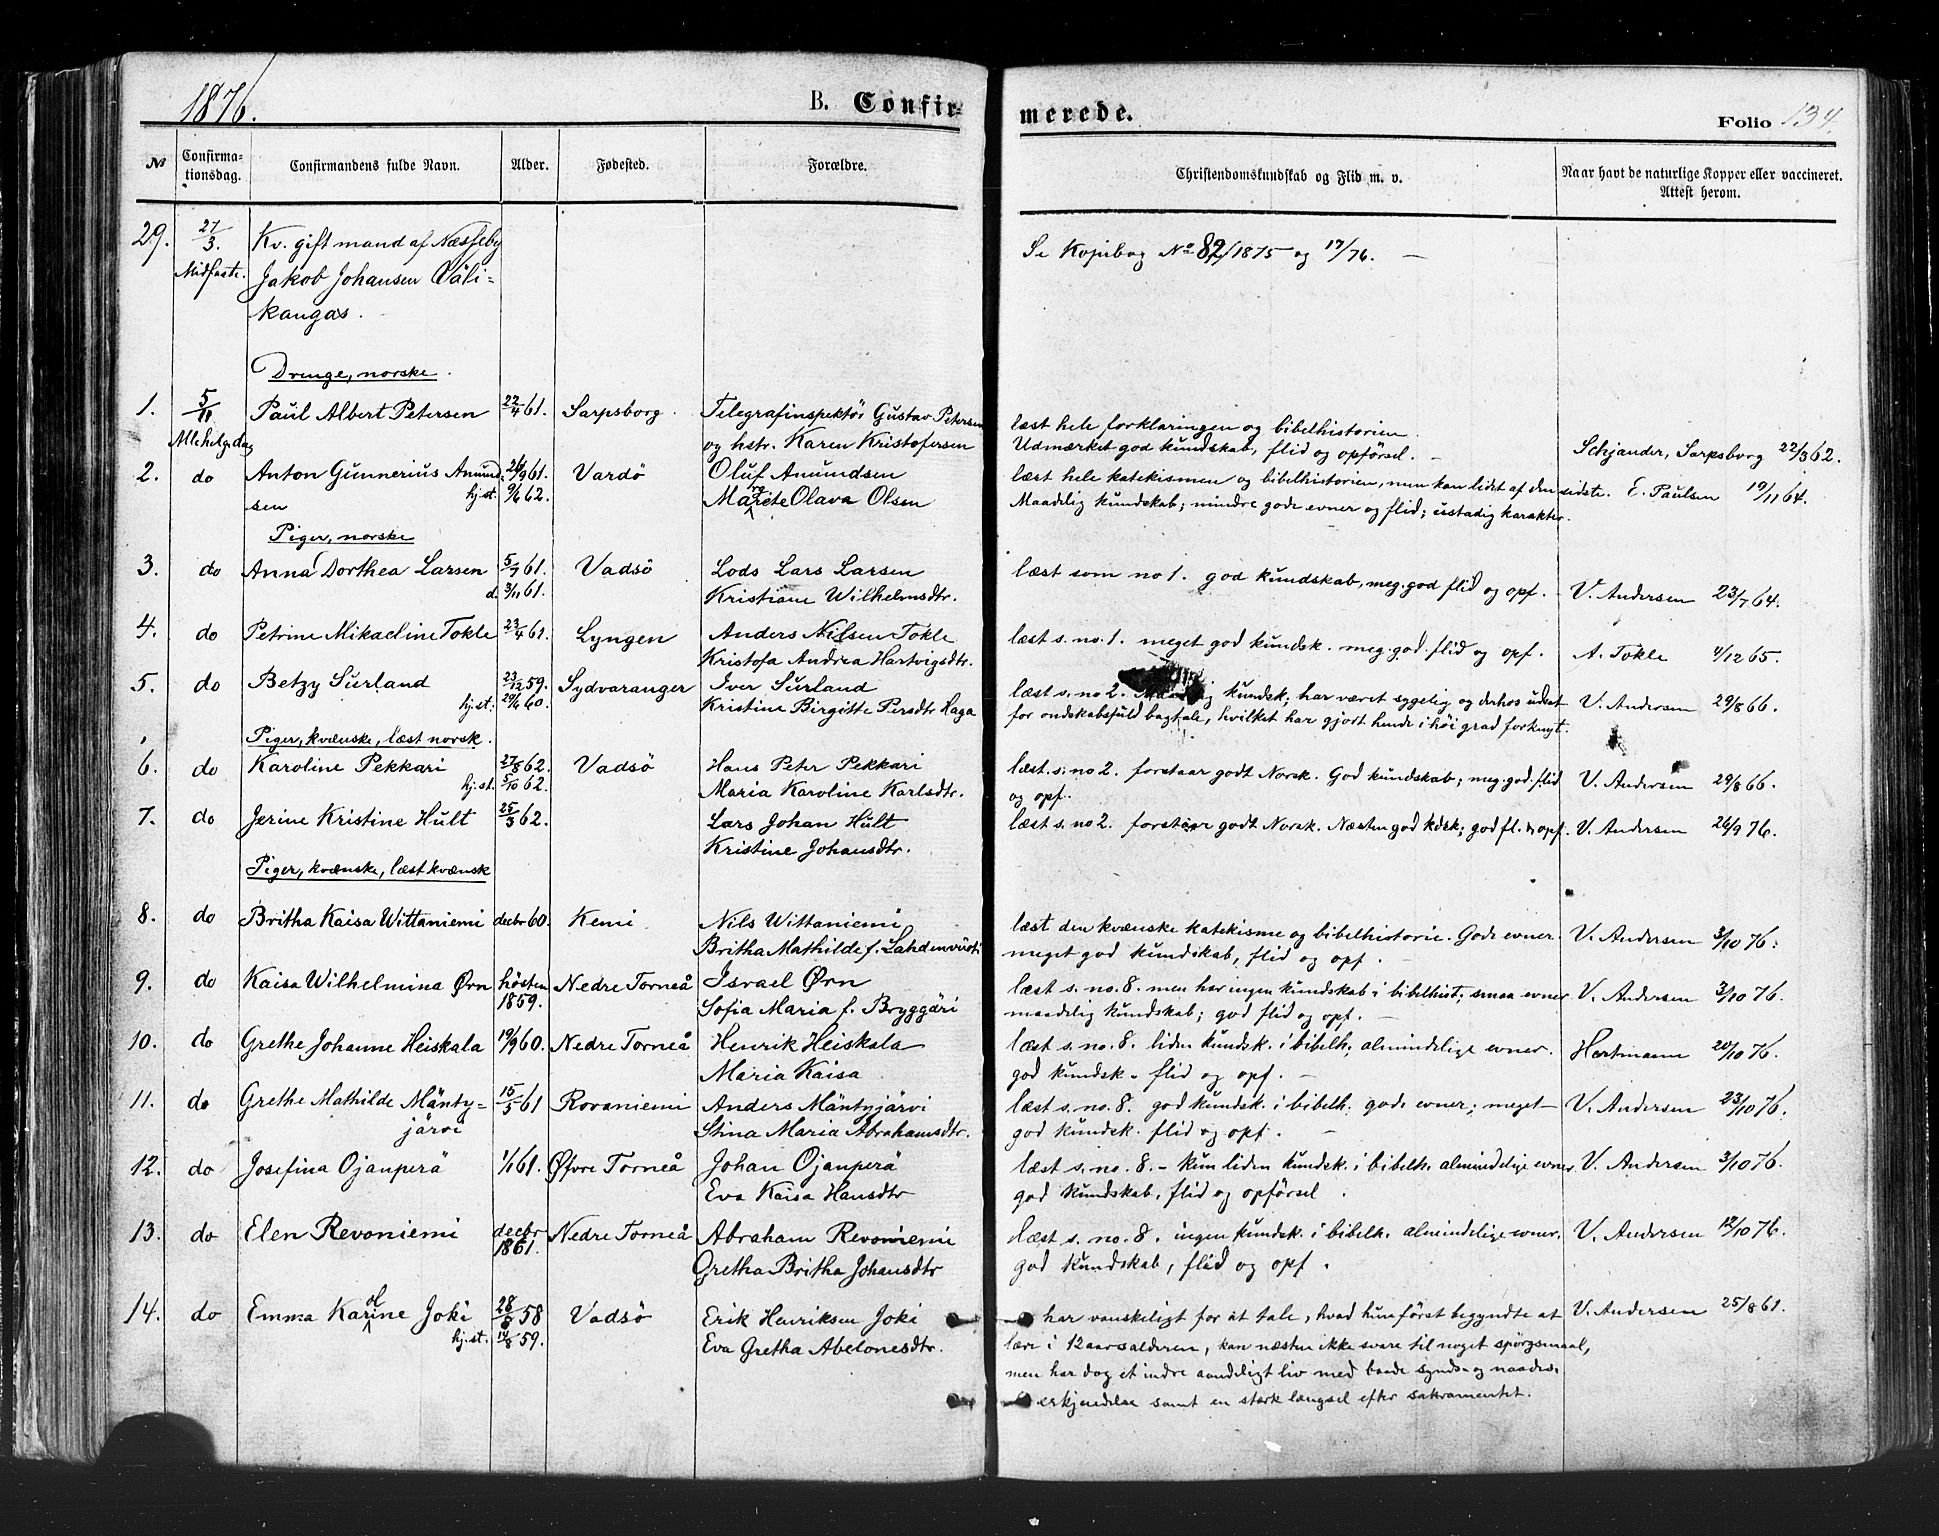 1876.
B. Confir-
merede.
Folio 134.
No
Confirma-
tionsdag.
Confirmandens fulde Navn.
Alder.
Fødested.
Forældre.
Christendomskundskab og Flid m. v.
Naar havt de naturlige Kopper eller vaccineret.
Attest herom.
29. 27/3. Kv. gift mand af Næsseby
Midfaste. Jakob Johansen Väli-
kangas.
Se Kopibog No 82/1875 og 17/76. —
Drenge, norske.
1. 5/11 Paul Albert Petersen 22/4 61. Sarpsborg. Telegrafinspektör Gustav Petersen
Allehelgedag og hstr. Karen Kristofersen
læst hele forklaringen og bibelhistorien.
Udmærket god kundskab, flid og opförsel. — Schjander, Sarpsborg 22/3 62.
2. do Anton Gunnerius Amund- 26/9 61. Vardö Oluf Amundsen
sen hj.st. 9/6 62. Marete Olava Olsen
læst hele katekismen og bibelhistorien, men kan lidet af den sidste. E. Paulsen 19/11 64.
Maadelig kundskab; mindre gode evner og flid; ustadig karakter.
Piger, norske
3. do Anna Dorthea Larsen 5/7 61. Vadsö Lods Lars Larsen
d. 3/11 61. Kristiane Wilhelmsdtr.
læst som no 1. god kundskab, meg. god flid og opf. — V. Andersen 23/7 64.
4. do Petrine Mikaeline Tokle 23/4 61. Lyngen Anders Nilsen Tokle
Kristofa Andrea Hartvigsdtr.
læst s. no. 1. meget god kundsk. meg. god flid og opf. A. Tokle 4/12 65.
5. do Betzy Surland 23/12 59. Sydvaranger Iver Surland
hj.st. 29/6 60. Kristine Birgitte Persdtr Haga
læst s. no 2. kundsk, har været sygelig og derhos udsat V. Andersen 29/8 66.
for ondskabsfuld bagtale, hvilket har gjort hende i höi grad forknyt.
Piger, kvænske, læst norsk.
6. do Karoline Pekkari 27/8 62. Vadsö Hans Peter Pekkari
hj.st. 5/10 62. Maria Karoline Karlsdtr.
læst s. no 2. forstaar godt Norsk. God kundskab; meg. god flid V. Andersen 29/8 66.
og opf.
7. do Jerine Kristine Hult 25/3 62. Lars Johan Hult
Kristine Johansdtr.
læst s. no 2. forstaar godt Norsk. Næsten god kdsk; god fl. & opf. V. Andersen 26/9 76.
Piger, kvænske, læst kvænsk
8. do Britha Kaisa Wittaniemi decbr 60. Kemi Nils Wittaniemi
Britha Mathilde f. Lahdenvuoti
læst den kvænske katekisme og bibelhistorie. Gode evner V. Andersen 3/10 76.
meget god kundskab, flid og opf.
9. do Kaisa Wilhelmina Ørn hösten Nedre Torneå Israel Ørn
1859. Sofia Maria f. Bryggäri
læst s. no. 8. men har ingen kundskab i bibelhist; smaa evner V. Andersen 3/10 76.
maadelig kundskab; god flid og opf. —
10. do Grethe Johanne Heiskala 19/9 60. Nedre Torneå Henrik Heiskala
Maria Kaisa
læst s. no. 8. liden kundsk. i bibelh; almindelige evner. Hartmann 20/10 76.
god kundsk. flid og opf. —
11. do Grethe Mathilde Mänty- 15/5 61 Rovaniemi Anders Mäntyjärvi
järvi Stina Maria Abrahamsdtr.
læst s. no. 8. god kundsk. i bibelh. gode evner; meget V. Andersen 23/10 76.
god kundsk. flid og opf. —
12. do Josefina Ojanperä 1/1 61. Øfvre Torneå Johan Ojanperä
Eva Kaisa Hansdtr
læst s. no. 8. - kun liden kundsk. i bibelh. almindelige evner V. Andersen 3/10 76.
god kundskab, flid og opförsel.
13. do Elen Revoniemi decbr Nedre Torneå Abraham Revoniemi
1861. Gretha Britha Johansdtr
læst s. no. 8. ingen kundsk. i bibelh. almindelige evner. V. Andersen 12/10 76.
god kundskab, flid og opf.
14. do Emma Karoline Joki 28/8 58 Vadsö Erik Henriksen Joki
hj.st. 14/8 59. Eva Gretha Abelonesdtr.
har vanskeligt for at tale, hvad hun först begyndte at V. Andersen 25/8 61.
lære i 12 aarsalderen, kan næsten ikke svare til noget spörgsmaal,
men har dog et indre aandeligt liv med baade synds- og naades-
erkjendelse samt en stærk længsel efter sakramentet.